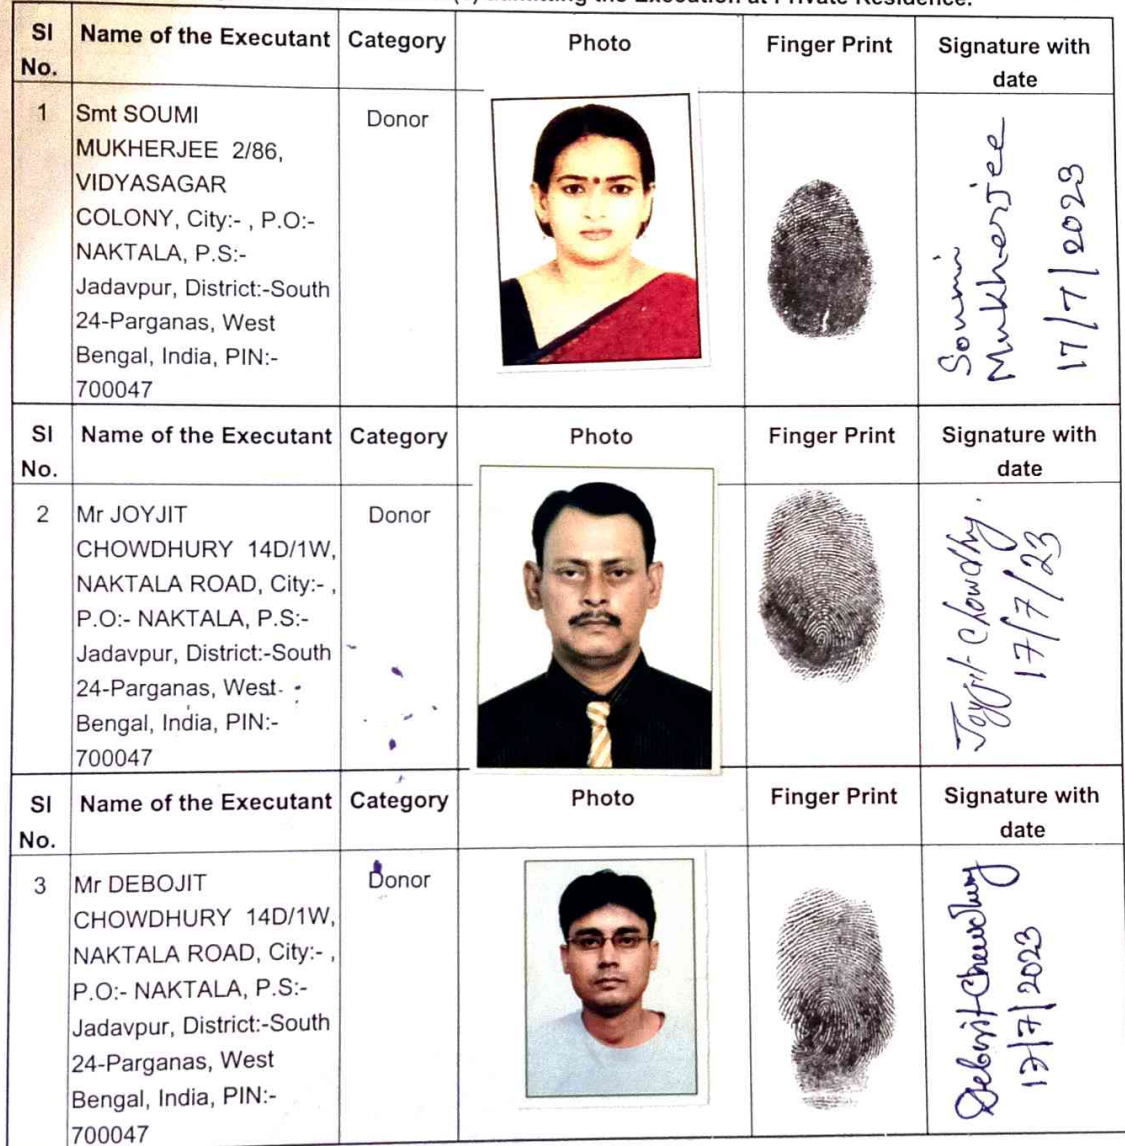 (s) admitting the Execution at Private Residence.
Sl No. Name of the Executant Category Photo Finger Print Signature with date
1 Smt SOUMI Donor
MUKHERJEE 2/86,
VIDYASAGAR
COLONY, City:- , P.O:-
NAKTALA, P.S:-
Jadavpur, District:-South
24-Parganas, West
Bengal, India, PIN:-
700047
Soumi
Mukherjee
17/7/2023
Sl No. Name of the Executant Category Photo Finger Print Signature with date
2 Mr JOYJIT Donor
CHOWDHURY 14D/1W,
NAKTALA ROAD, City:- ,
P.O:- NAKTALA, P.S:-
Jadavpur, District:-South
24-Parganas, West
Bengal, India, PIN:-
700047
Joyjit Chowdhy.
17/7/23
Sl No. Name of the Executant Category Photo Finger Print Signature with date
3 Mr DEBOJIT Donor
CHOWDHURY 14D/1W,
NAKTALA ROAD, City:- ,
P.O:- NAKTALA, P.S:-
Jadavpur, District:-South
24-Parganas, West
Bengal, India, PIN:-
700047
Debojit Chowdhury
17/7/2023